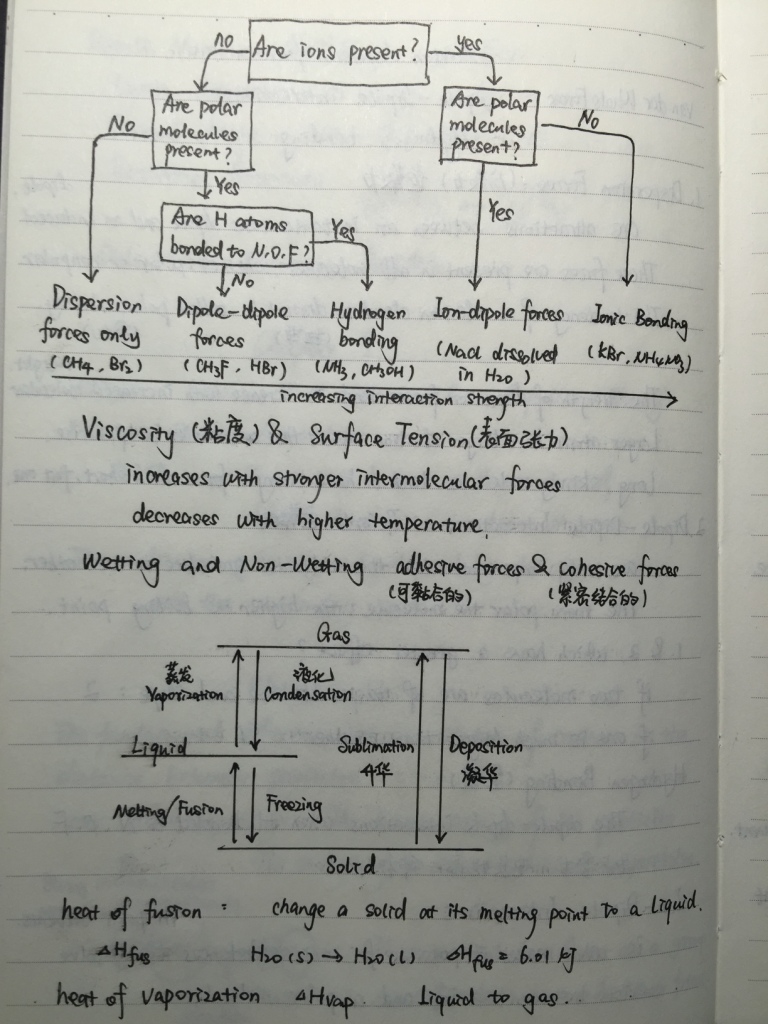 no Are ions present? yes
No Are polar molecules present? Are polar molecules present? No
Yes Yes
Are H atoms bonded to N.O.F? Yes
No
Dispersion forces only Dipole-dipole forces Hydrogen bonding Ion-dipole forces Ionic Bonding
(CH4, Br2) (CH3F, HBr) (NH3, CH3OH) (NaCl dissolved in H2O) (KBr, NH4NO3)
increasing interaction strength
Viscosity (粘度) & Surface Tension (表面张力)
increases with stronger intermolecular forces
decreases with higher temperature.
Wetting and Non-Wetting adhesive forces & cohesive forces
(可黏合的) (紧密结合的)
Gas
蒸发 液化
Vaporization Condensation
Liquid Sublimation Deposition
升华 凝华
Melting/Fusion Freezing
Solid
heat of fusion: change a solid at its melting point to a liquid.
ΔHfus H2O(s) → H2O(l) ΔHfus = 6.01 kJ
heat of vaporization ΔHvap. Liquid to gas..